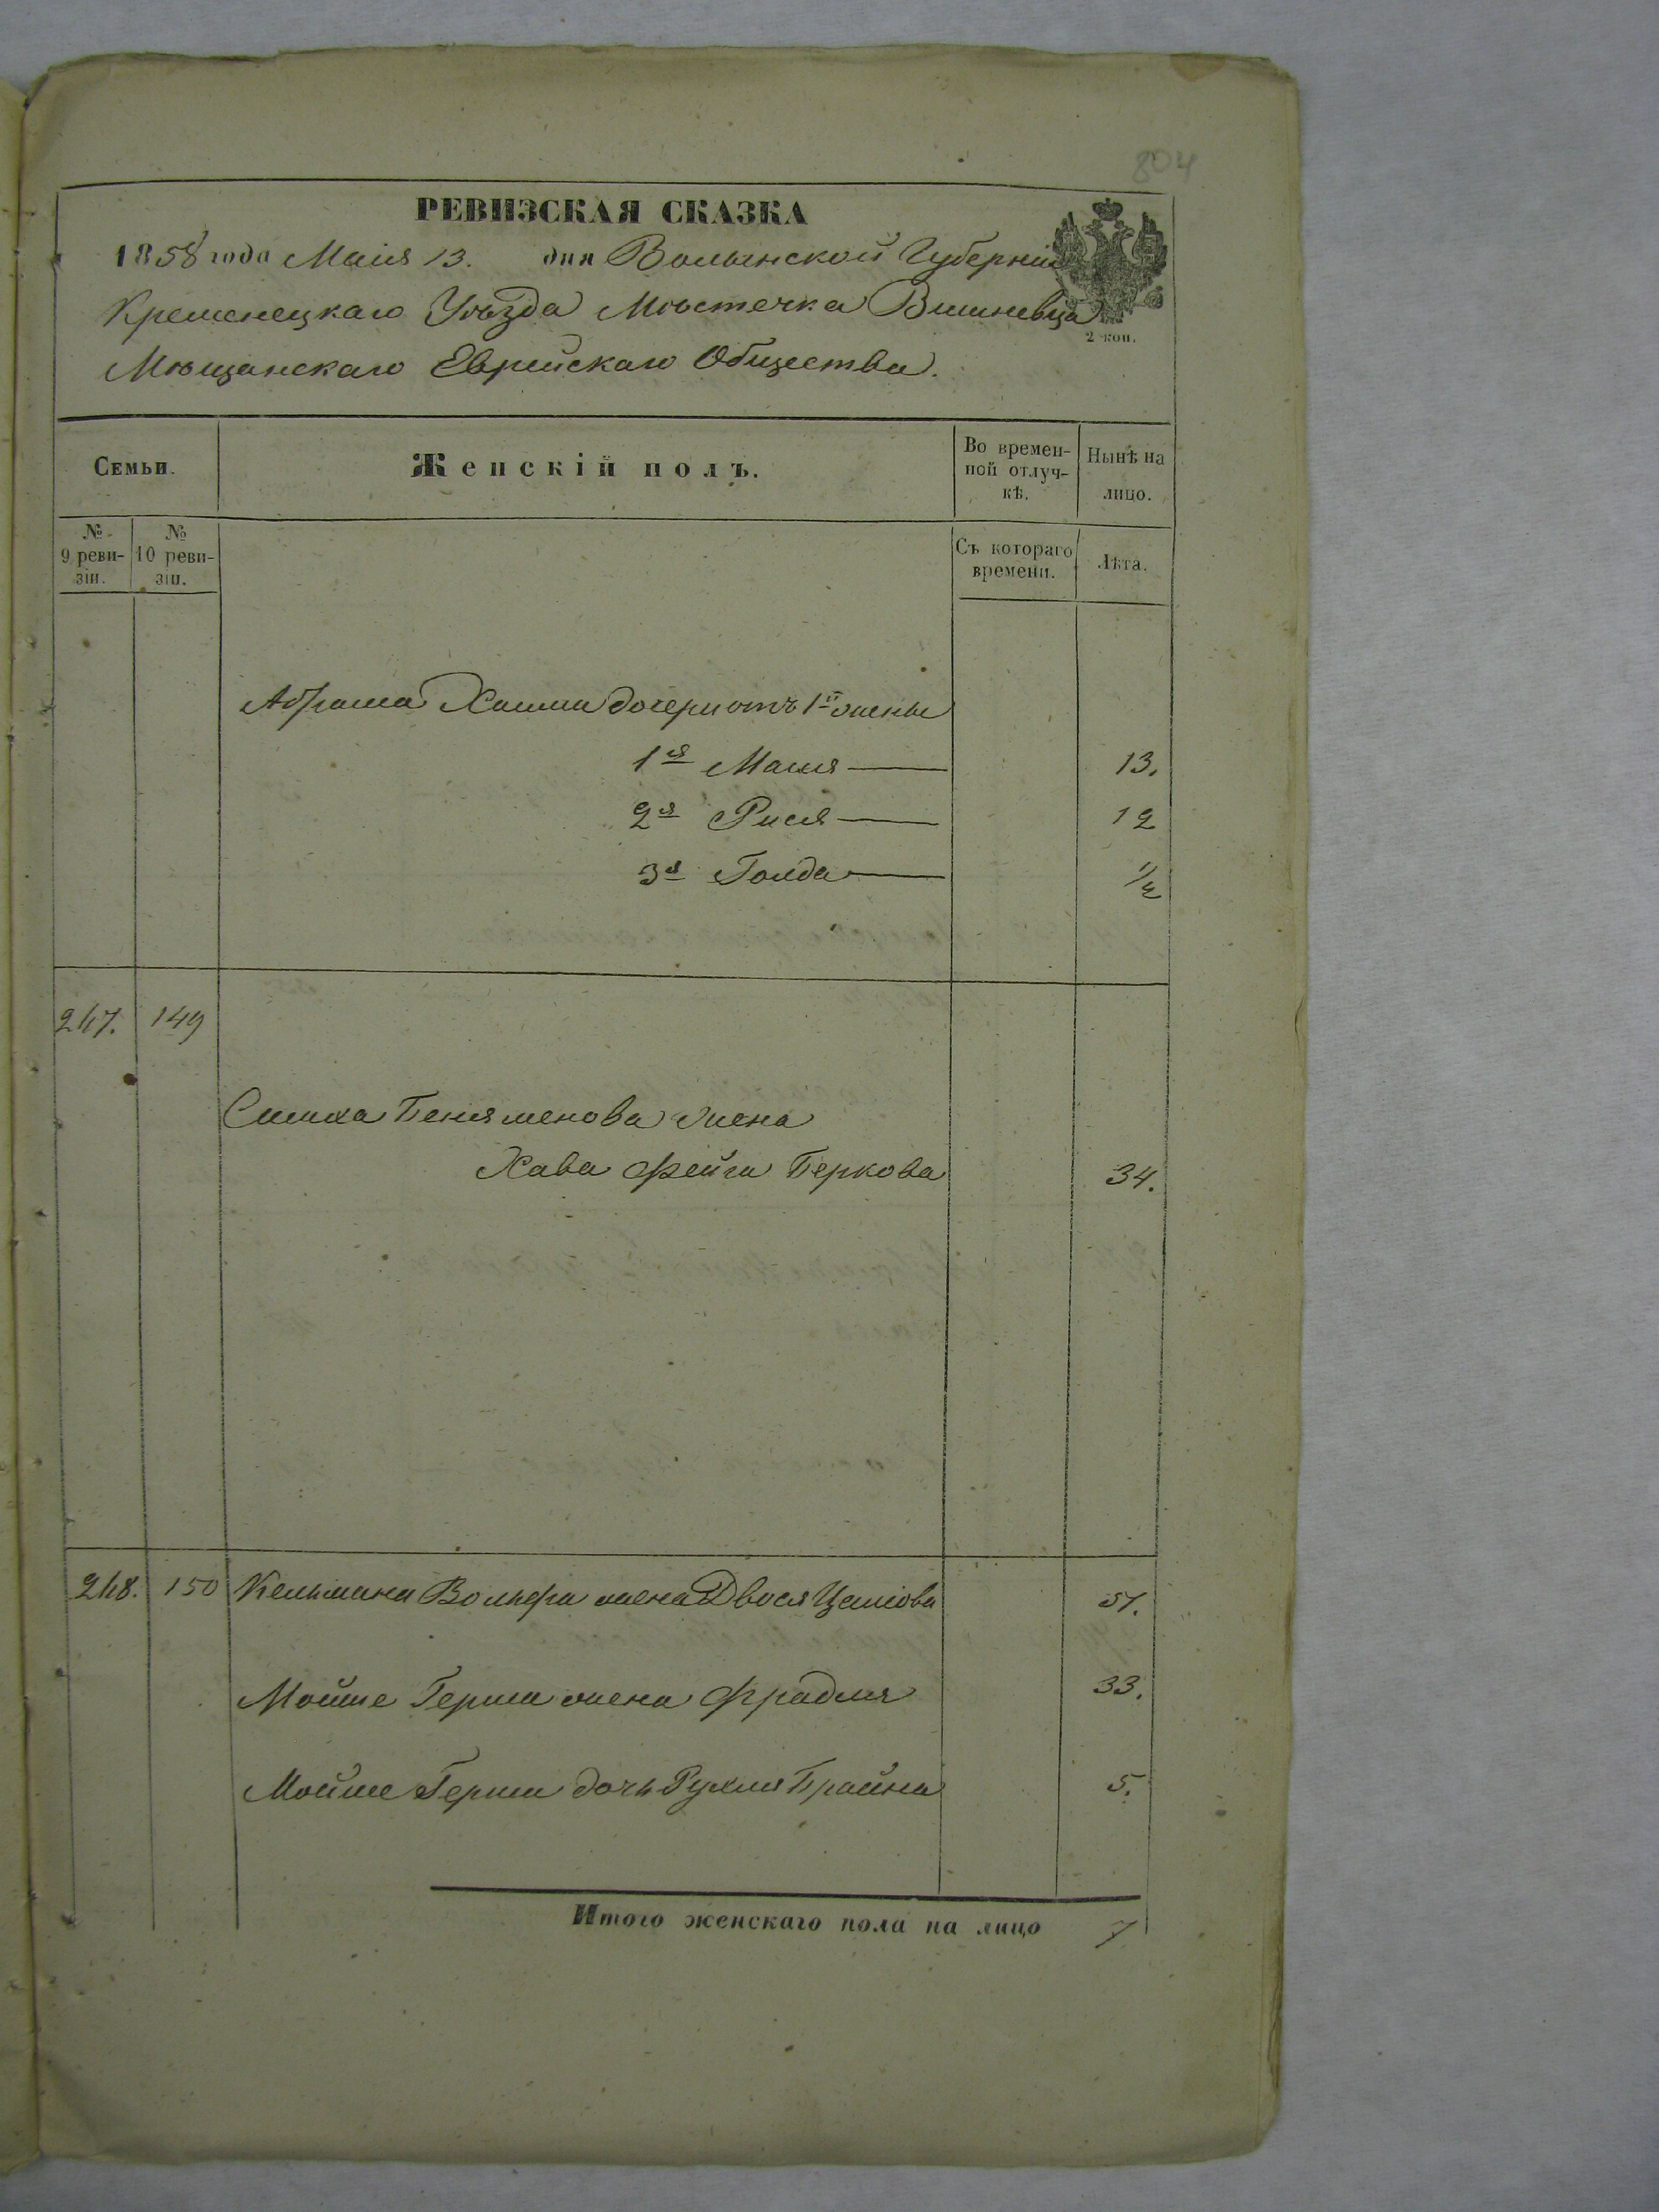 804
РЕВИЗСКАЯ СКАЗКА
1858 года Маія 13. дня Волынской Губерніи
Кременецкаго Уѣзда Мѣстечка Вишневца
2 коп.
Мѣщанскаго Еврейскаго Общества.
Семьи.
Женскій полъ.
Во времен-
ной отлуч-
кѣ.
Нынѣ на
лицо.
№ 9 реви-
зіи.
№ 10 реви-
зіи.
Съ котораго
времени.
Лѣта.
Абрама Хаима дочери отъ 1й жены
1я Маля 13.
2я Рися 12
3я Голда 1/2
247. 149
Симха Беняменова жена
Хава Фейга Беркова 34.
248. 150 Кельмана Вольфа жена Двося 51.
Мойше Герша жена Фрадля 33.
Мойше Герша дочь Рухля Брайна 5.
Итого женскаго пола на лицо 7